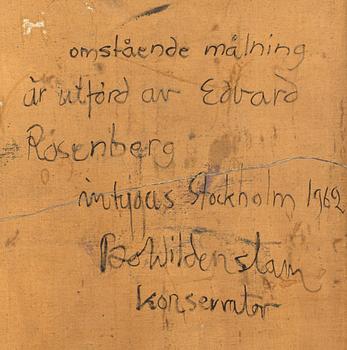 omstående målning
är utförd av Edvard
Rosenberg
intygas Stockholm 1962
Bo Wildenstam
Konservator